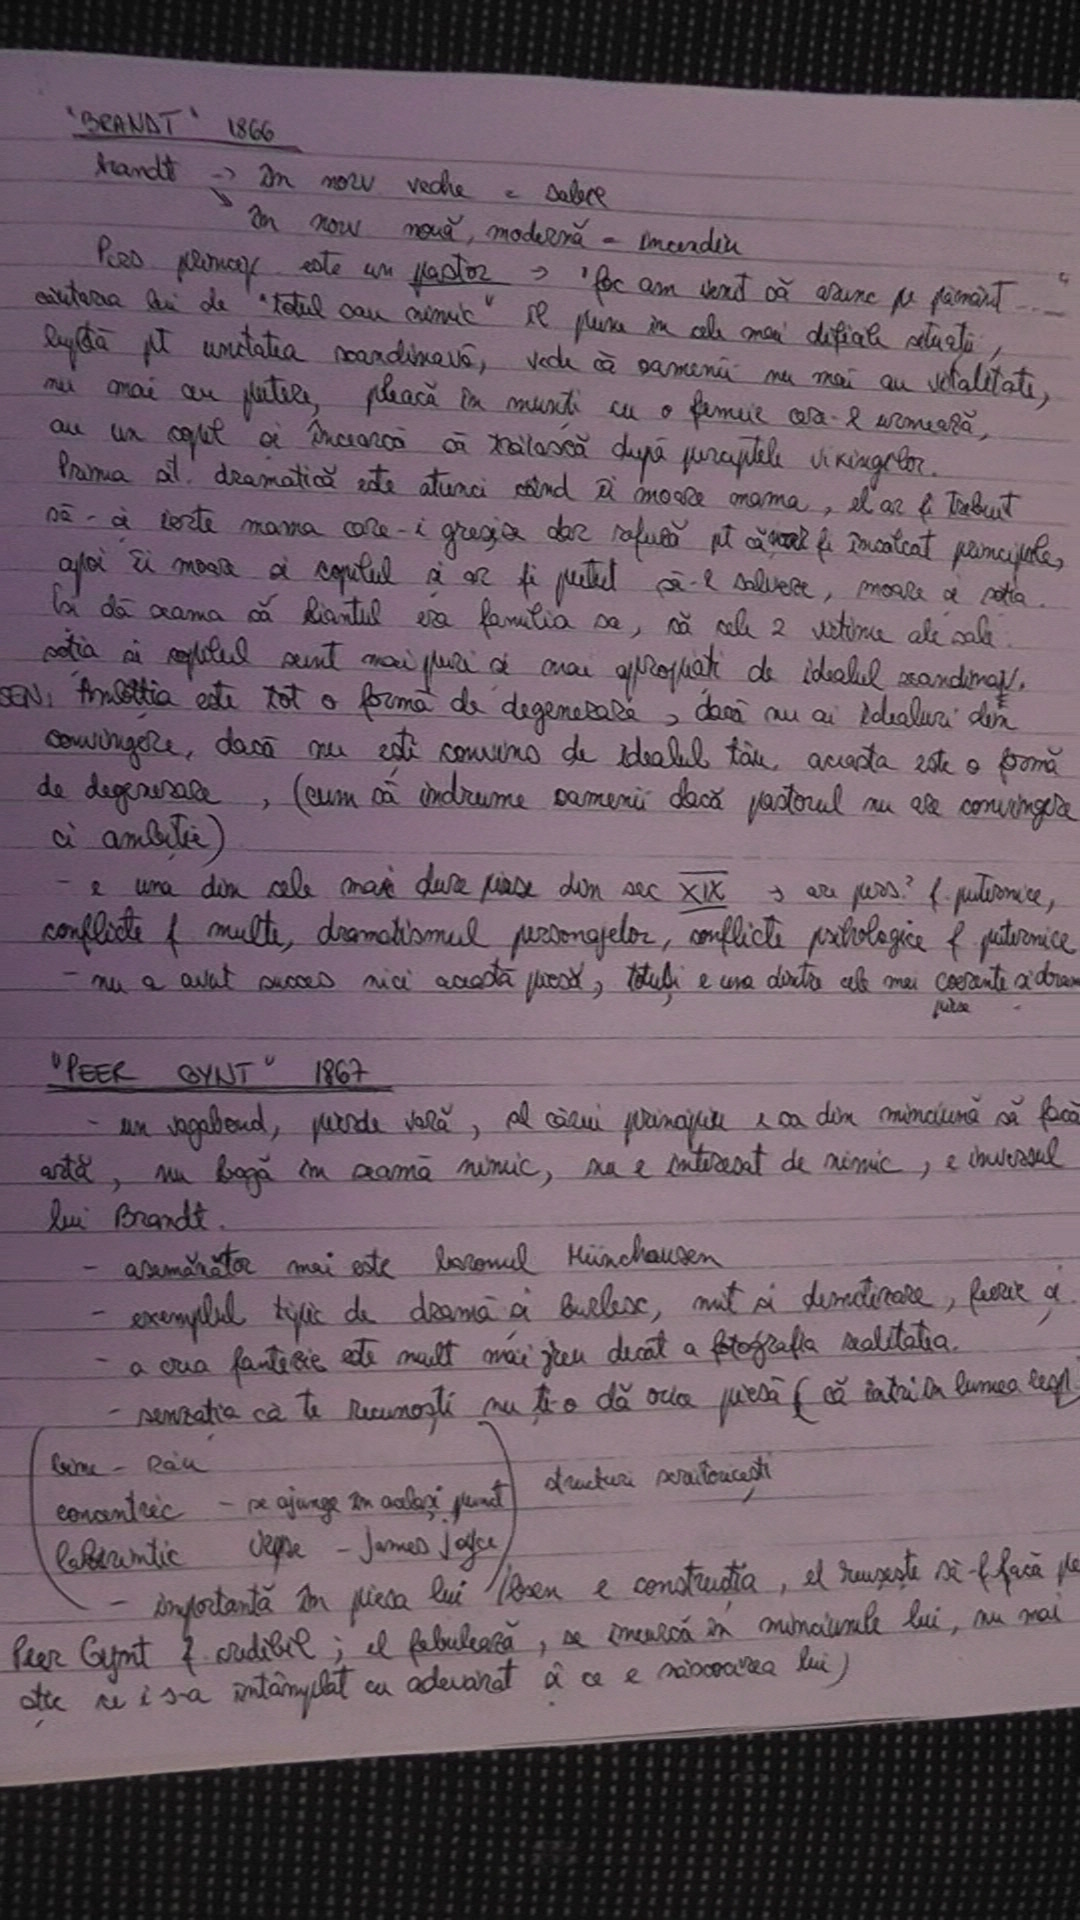 "BRANDT" 1866
brandt -> în norv veche = sabie
în norv nouă, modernă = incendiu
Pers princip. este un pastor -> "foc am venit să arunc pe pământ ...."
căutarea lui de "totul sau nimic" îl pune în cele mai dificile situații,
luptă pt unitatea scandinavă, vede că oamenii nu mai au vitalitate,
nu mai au putere, pleacă în munți cu o femeie care-l urmează,
au un copil și încearcă să trăiască după preceptele vikingilor.
Prima sit. dramatică este atunci când îi moare mama, el ar fi trebuit
să-și ierte mama care-i greșise dar refuză pt că fi încălcat principiile,
apoi îi moare și copilul și ar fi putut să-l salveze, moare și soția.
Își dă seama că liantul era familia sa, că cele 2 victime ale sale
soția și copilul sunt mai puri și mai apropiați de idealul scandinav.
SEN: Ambiția este tot o formă de degenerare, dacă nu ai idealuri din
convingere, dacă nu ești convins de idealul tău, aceasta este o formă
de degenerare, (cum să îndrume oamenii dacă pastorul nu are convingere
ci ambiție)
- e una din cele mai dure piese din sec XIX -> are pers. f puternice,
conflicte f multe, dramatismul personajelor, conflicte psihologice f puternice
- nu a avut succes nici această piesă, totuși e una dintre cele mai coerente și dram
piese
"PEER GYNT" 1867
- un vagabond, pierde vară, al cărui principiu e ca din minciună să facă
artă, nu bagă în seamă nimic, nu e interesat de nimic, e inversul
lui Brandt.
- asemănător mai este baronul Münchausen
- exemplul tipic de dramă și burlesc, mit și demitizare, feerie și
- a crea fantezie este mult mai greu decât a fotografia realitatea.
- senzația că te recunoști nu ți-o dă orice piesă (că intri în lumea resp)
bine - rău
concentric - se ajunge în același punct structuri scriitoricești
labirintic - James Joyce
- importantă în piesa lui Ibsen e construcția, el reușește să-l facă pe
Peer Gynt f credibil; el fabulează, se încurcă în minciunile lui, nu mai
știe ce i s-a întâmplat cu adevărat și ce e născocirea lui)